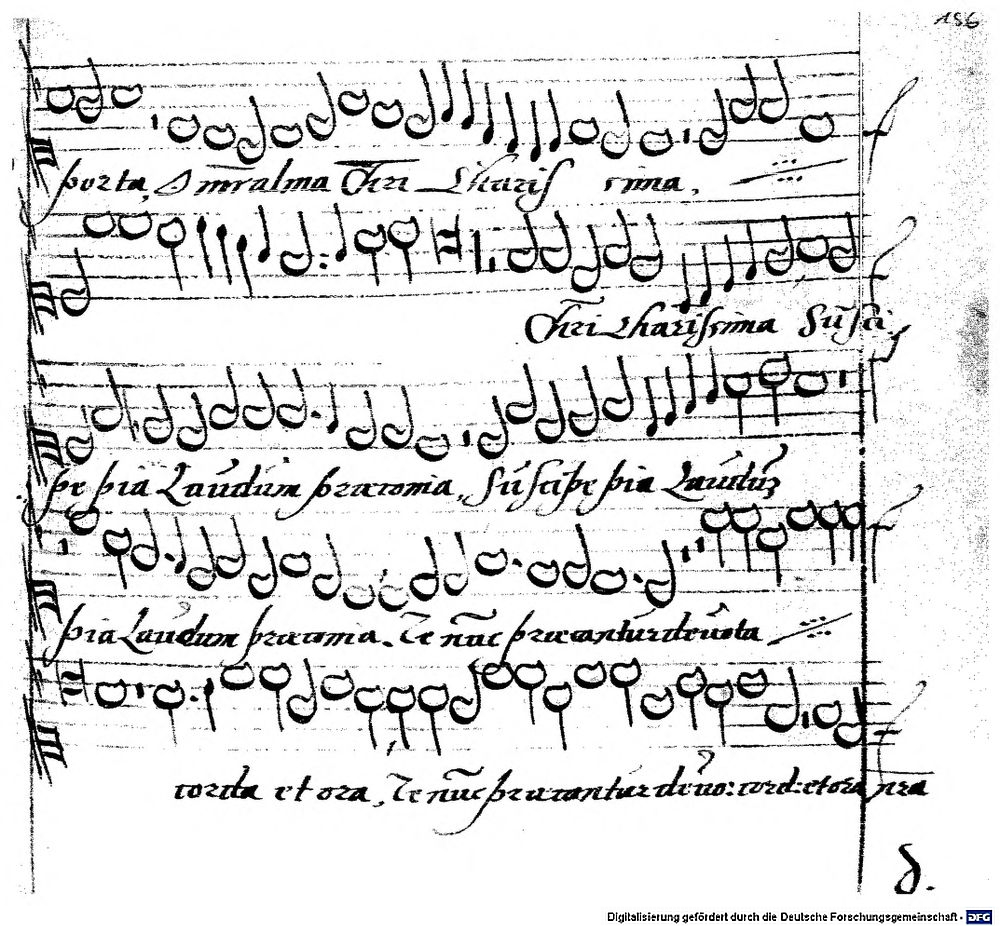 186
porta, O mr̄alma Chr̄i Charis sima,
Chr̄i Charissima Susci
pe pia Laudum præconia, Suscipe pia Laudūz
pia Laudum præconia. Te nūc præcantur devota
corda et ora, Te nūc præcantur devo: cord: et ora nr̄a
d.
Digitalisierung gefördert durch die Deutsche Forschungsgemeinschaft - DFG